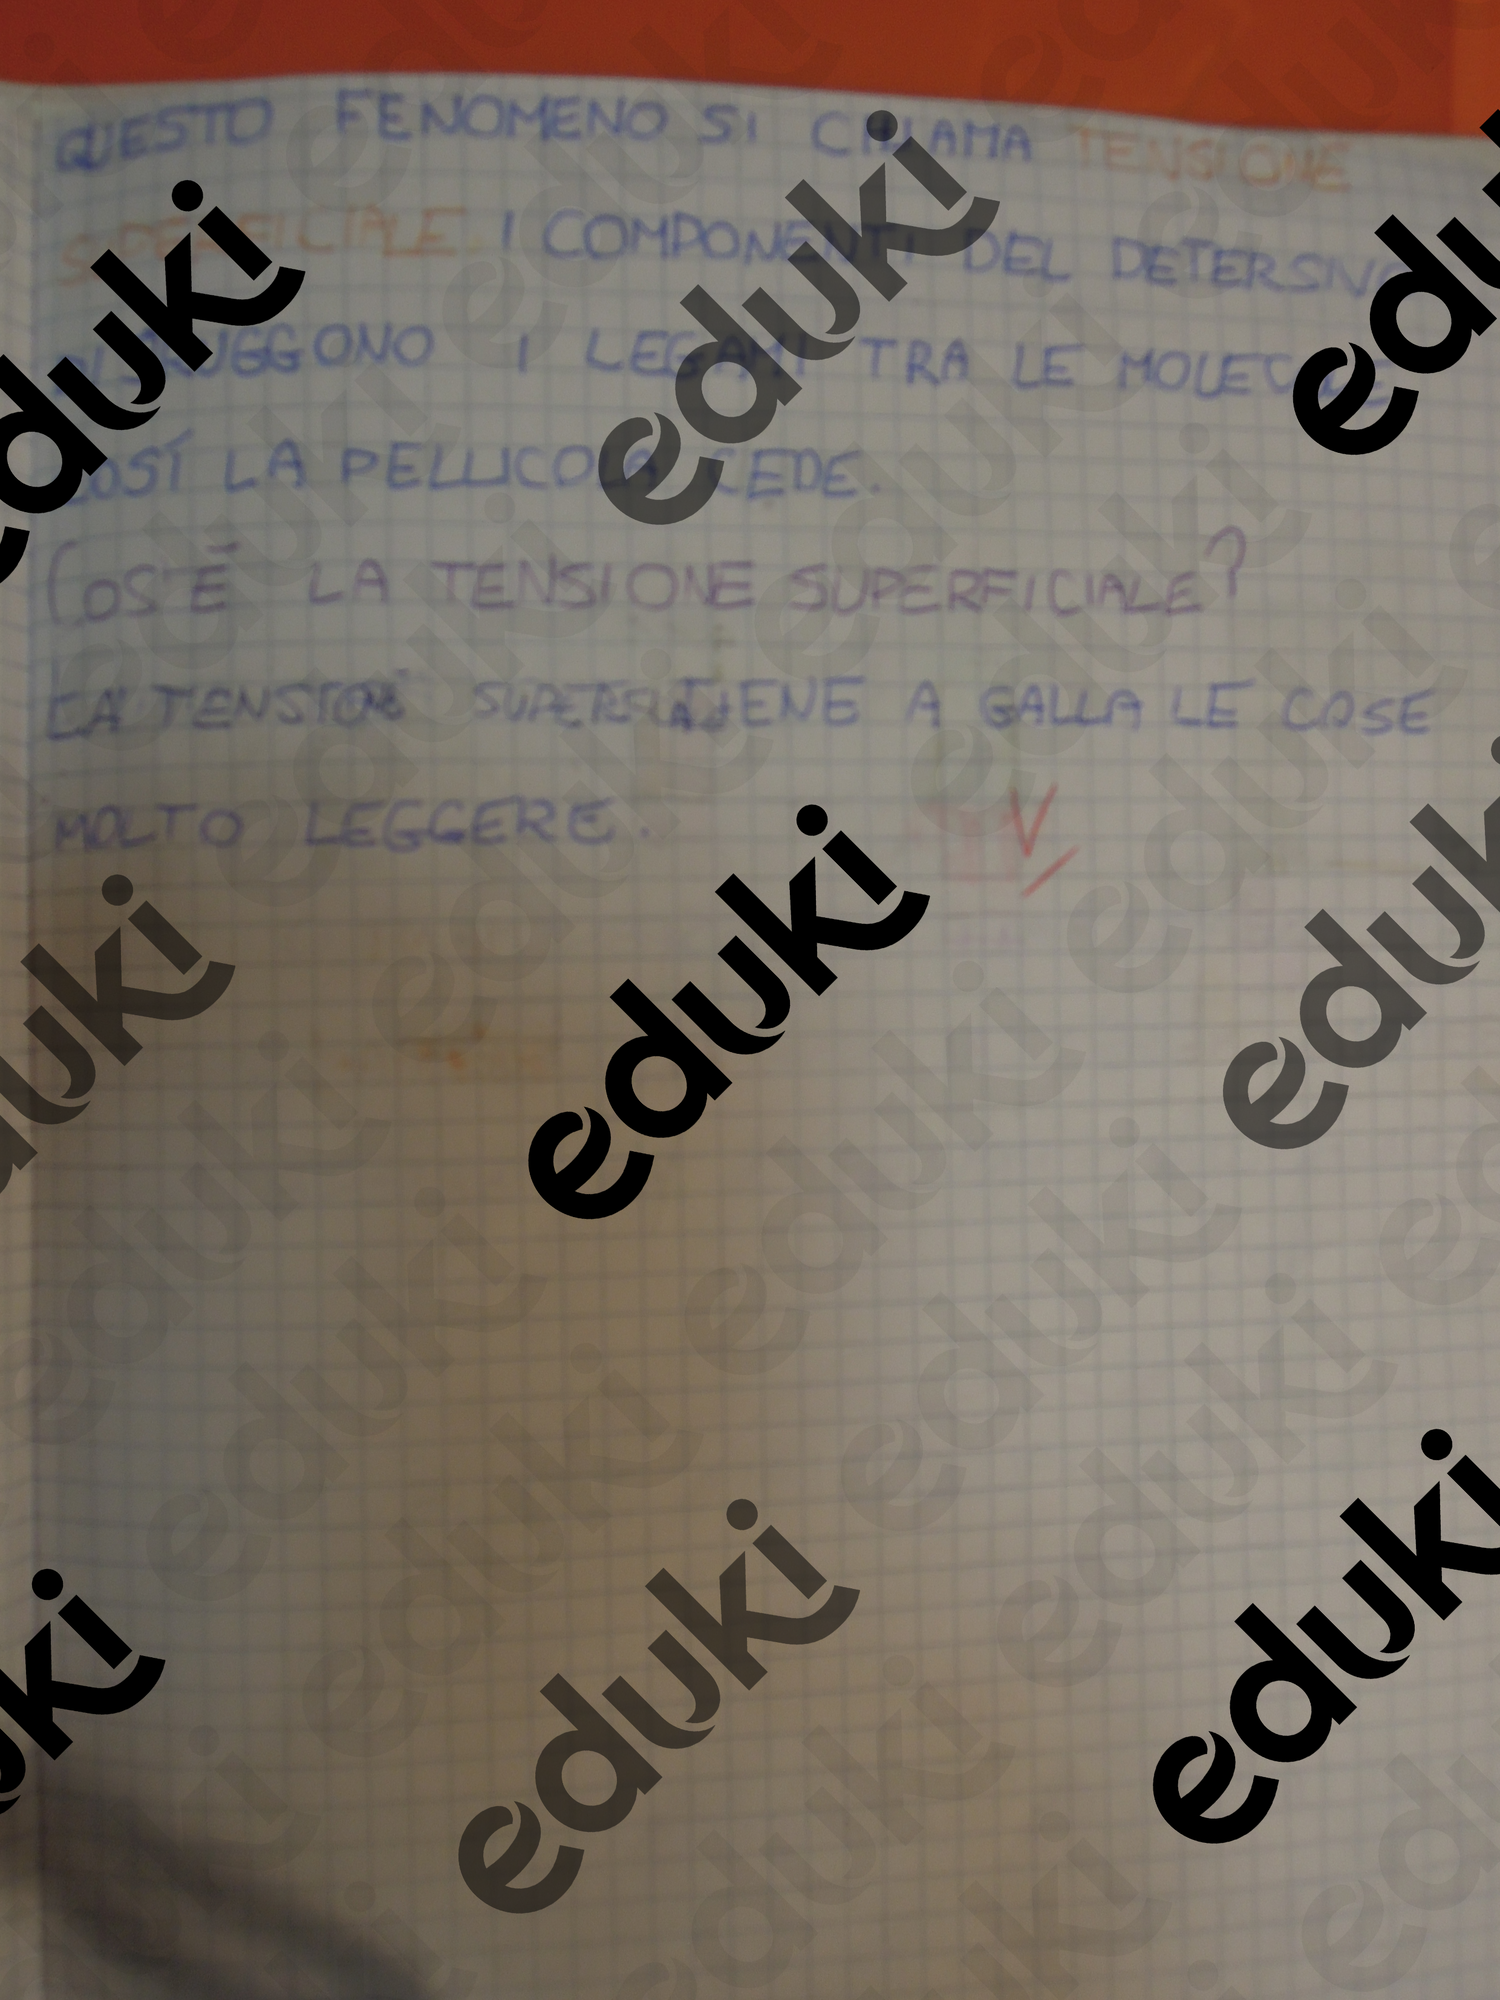 QUESTO FENOMENO SI CHIAMA TENSIONE
SUPERFICIALE. I COMPONENTI DEL DETERSIVO
DISTRUGGONO I LEGAMI TRA LE MOLECOLE
COSÍ LA PELLICOLA CEDE.
COS'È LA TENSIONE SUPERFICIALE?
LA TENSIONE TIENE A GALLA LE COSE
MOLTO LEGGERE.
V
eduki
eduki
eduki
eduki
eduki
eduki
eduki